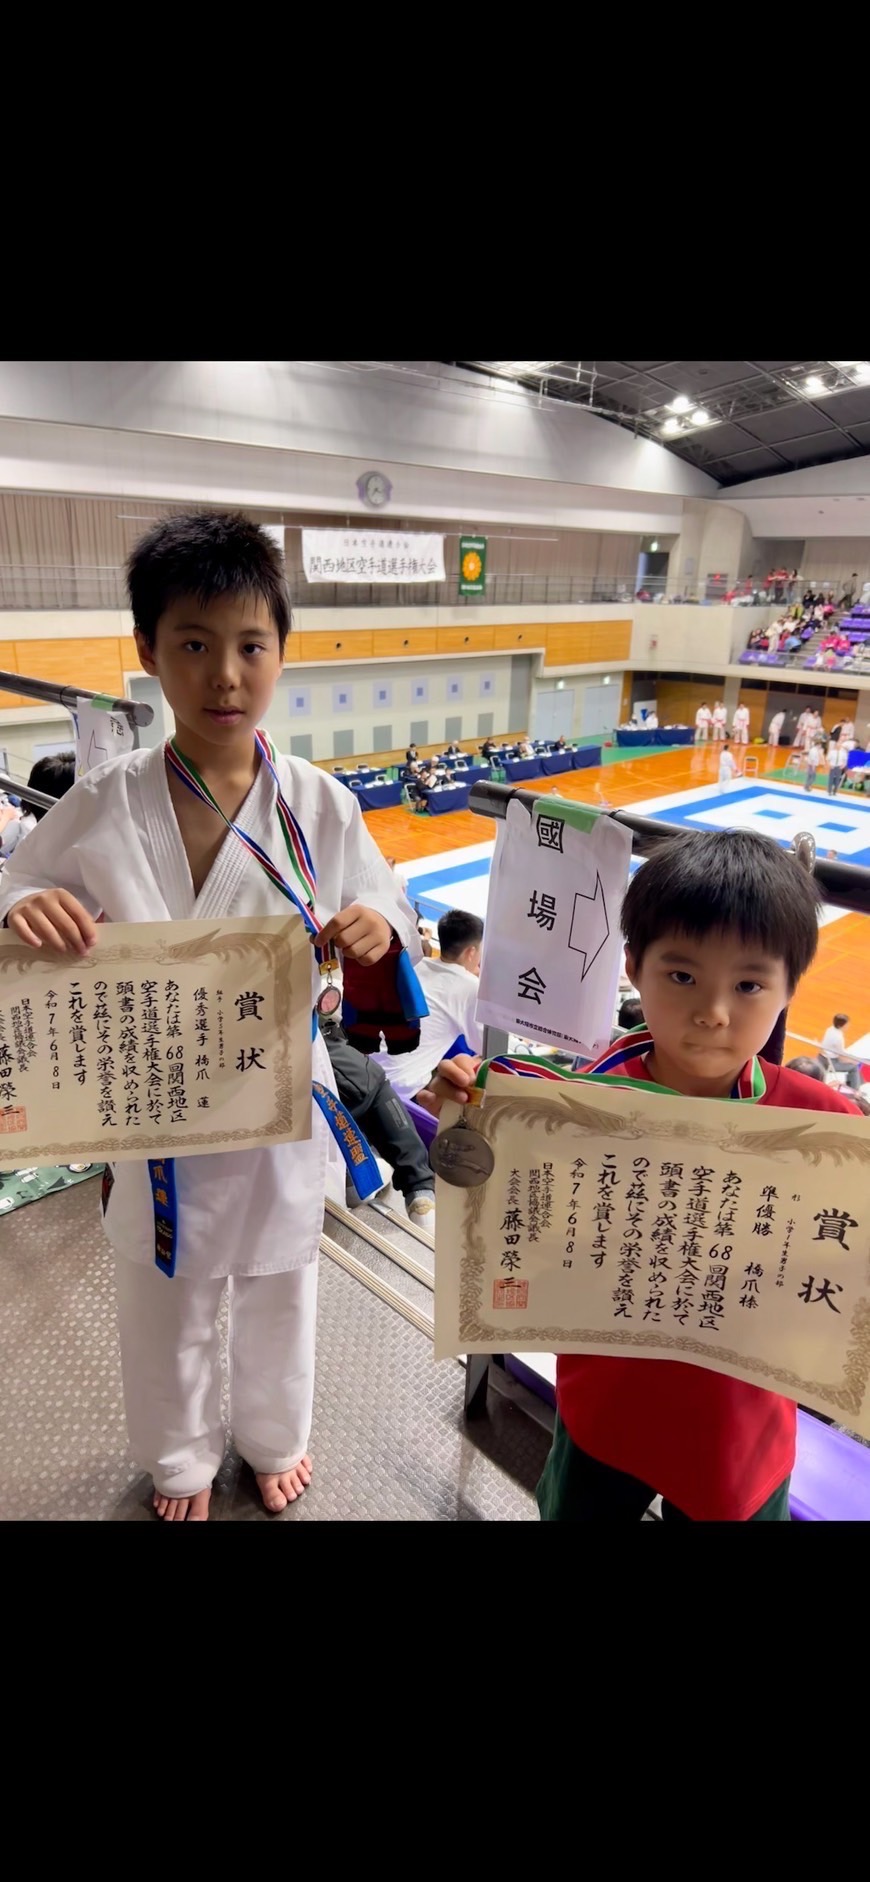 日本空手道連合会
関西地区空手道選手権大会
國場会
賞状
組手 小学5年生男子の部
優秀選手 橋爪 蓮
あなたは第68回関西地区
空手道選手権大会に於て
頭書の成績を収められた
ので茲にその栄誉を讃え
これを賞します
令和7年6月8日
日本空手道連合会
関西地区協議会議長
大会会長 藤田榮三
空手道連盟
爪蓮
賞状
形 小学1年生男子の部
準優勝 橋爪 榛
あなたは第68回関西地区
空手道選手権大会に於て
頭書の成績を収められた
ので茲にその栄誉を讃え
これを賞します
令和7年6月8日
日本空手道連合会
関西地区協議会議長
大会会長 藤田榮三